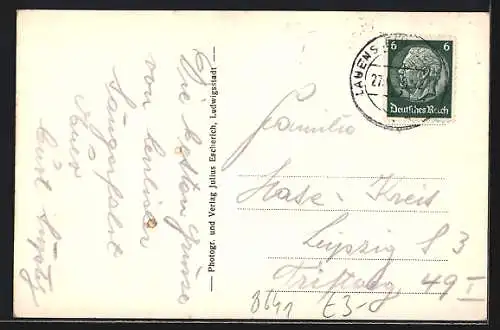 Die besten Grüsse
von herrlicher
Sängerfahrt
Euer
Curt
— Photogr. und Verlag Julius Escherich, Ludwigsstadt —
LAUENS
27.
6 6
Deutsches Reich
Familie
Hase-Kreis
Leipzig S 3
49 I
8641 E3-